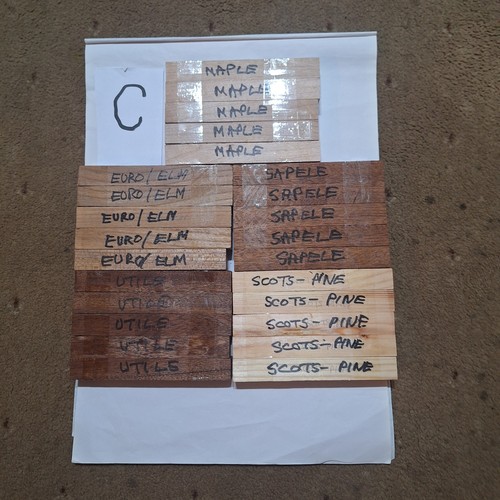 C
MAPLE
MAPLE
MAPLE
MAPLE
MAPLE
EURO/ELM
EURO/ELM
EURO/ELM
EURO/ELM
EURO/ELM
SAPELE
SAPELE
SAPELE
SAPELE
SAPELE
UTILE
UTILE
UTILE
UTILE
UTILE
SCOTS-PINE
SCOTS-PINE
SCOTS-PINE
SCOTS-PINE
SCOTS-PINE